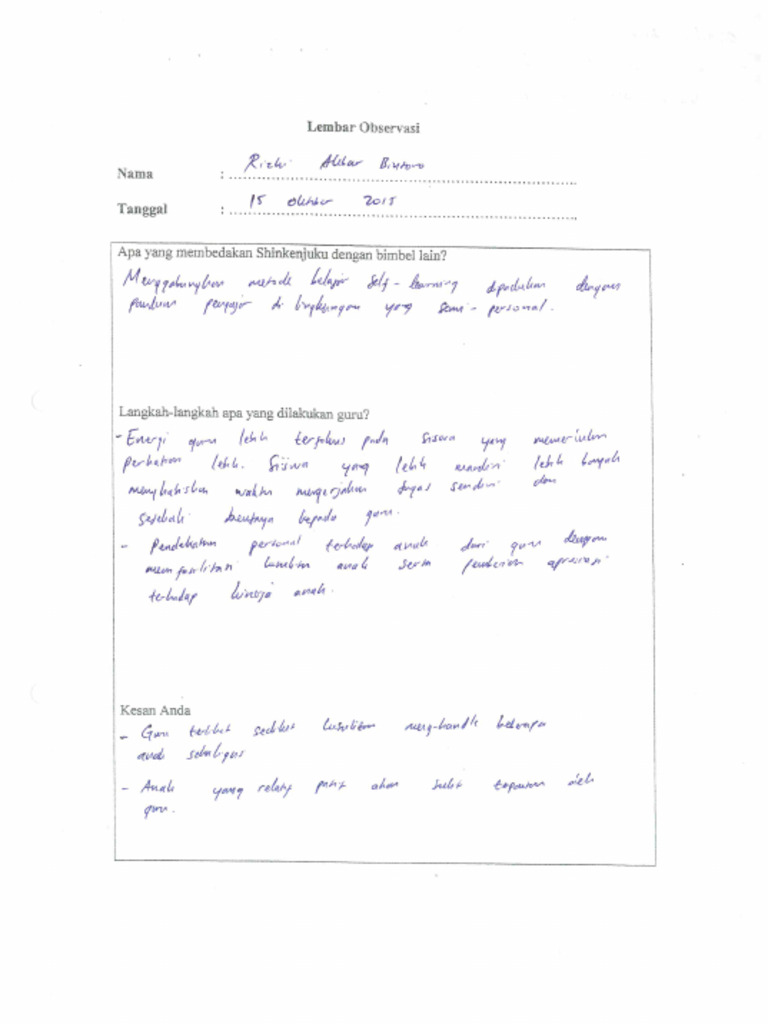 Lembar Observasi
Nama : Rizki Akbar Bintoro
Tanggal : 15 Oktober 2015
Apa yang membedakan Shinkenjuku dengan bimbel lain?
Menggabungkan metode belajar self-learning dipadukan dengan
panduan pengajar di lingkungan yang semi-personal.
Langkah-langkah apa yang dilakukan guru?
- Energi guru lebih terfokus pada siswa yang memerlukan
perhatian lebih. Siswa yang lebih mandiri lebih banyak
menghabiskan waktu mengerjakan tugas sendiri dan
sesekali bertanya kepada guru.
- Pendekatan personal terhadap anak dari guru dengan
memfasilitasi kesulitan anak serta pemberian apresiasi
terhadap kinerja anak.
Kesan Anda
- Guru terlihat sedikit kesulitan meng-handle beberapa
anak sekaligus
- Anak yang relatif pasif akan sulit terpantau oleh
guru.